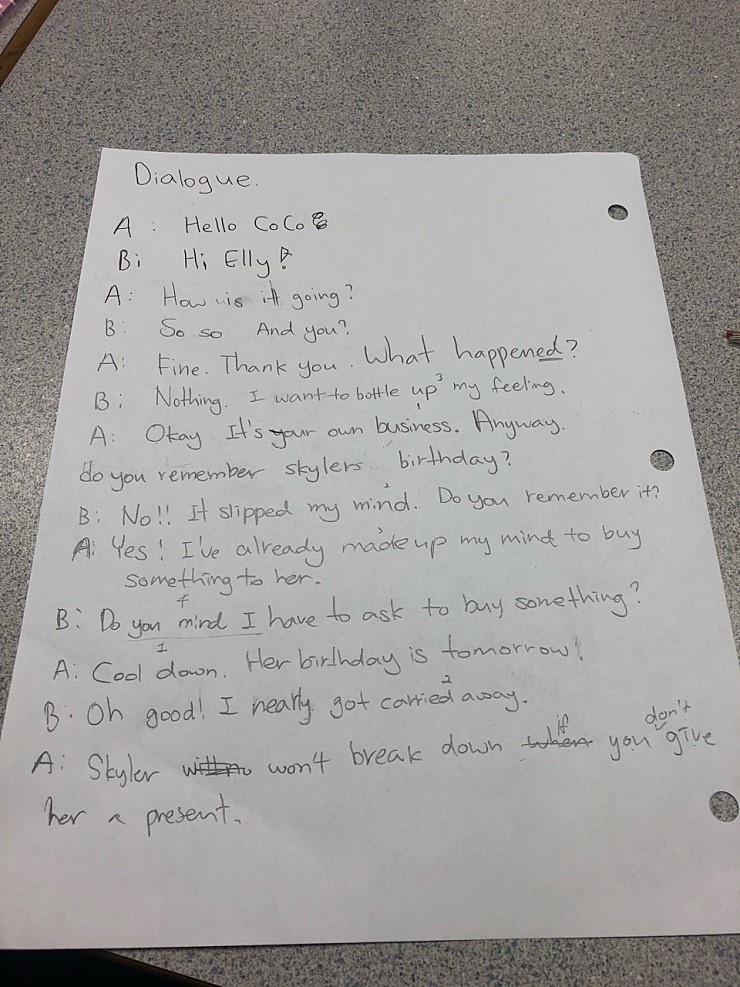 Dialogue.
A : Hello CoCo
B: Hi Elly!
A: How is it going?
B: So so. And you?
A: Fine. Thank you. What happened?
B: Nothing. I want to bottle up 3 my feeling.
A: Okay. It's your own business. 1 Anyway.
do you remember skylers birthday?
B: No!! It slipped my mind. 2 Do you remember it?
A: Yes! I've already made up 3 my mind to buy
something to her.
B: Do you mind 4 I have to ask to buy something?
A: Cool down. 1 Her birthday is tomorrow!
B: Oh good! I nearly got carried away. 2
A: Skyler won't break down if you don't give
her a present.